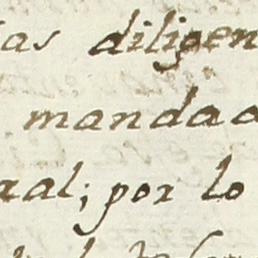 as diligen
mandaa
ral; por lo